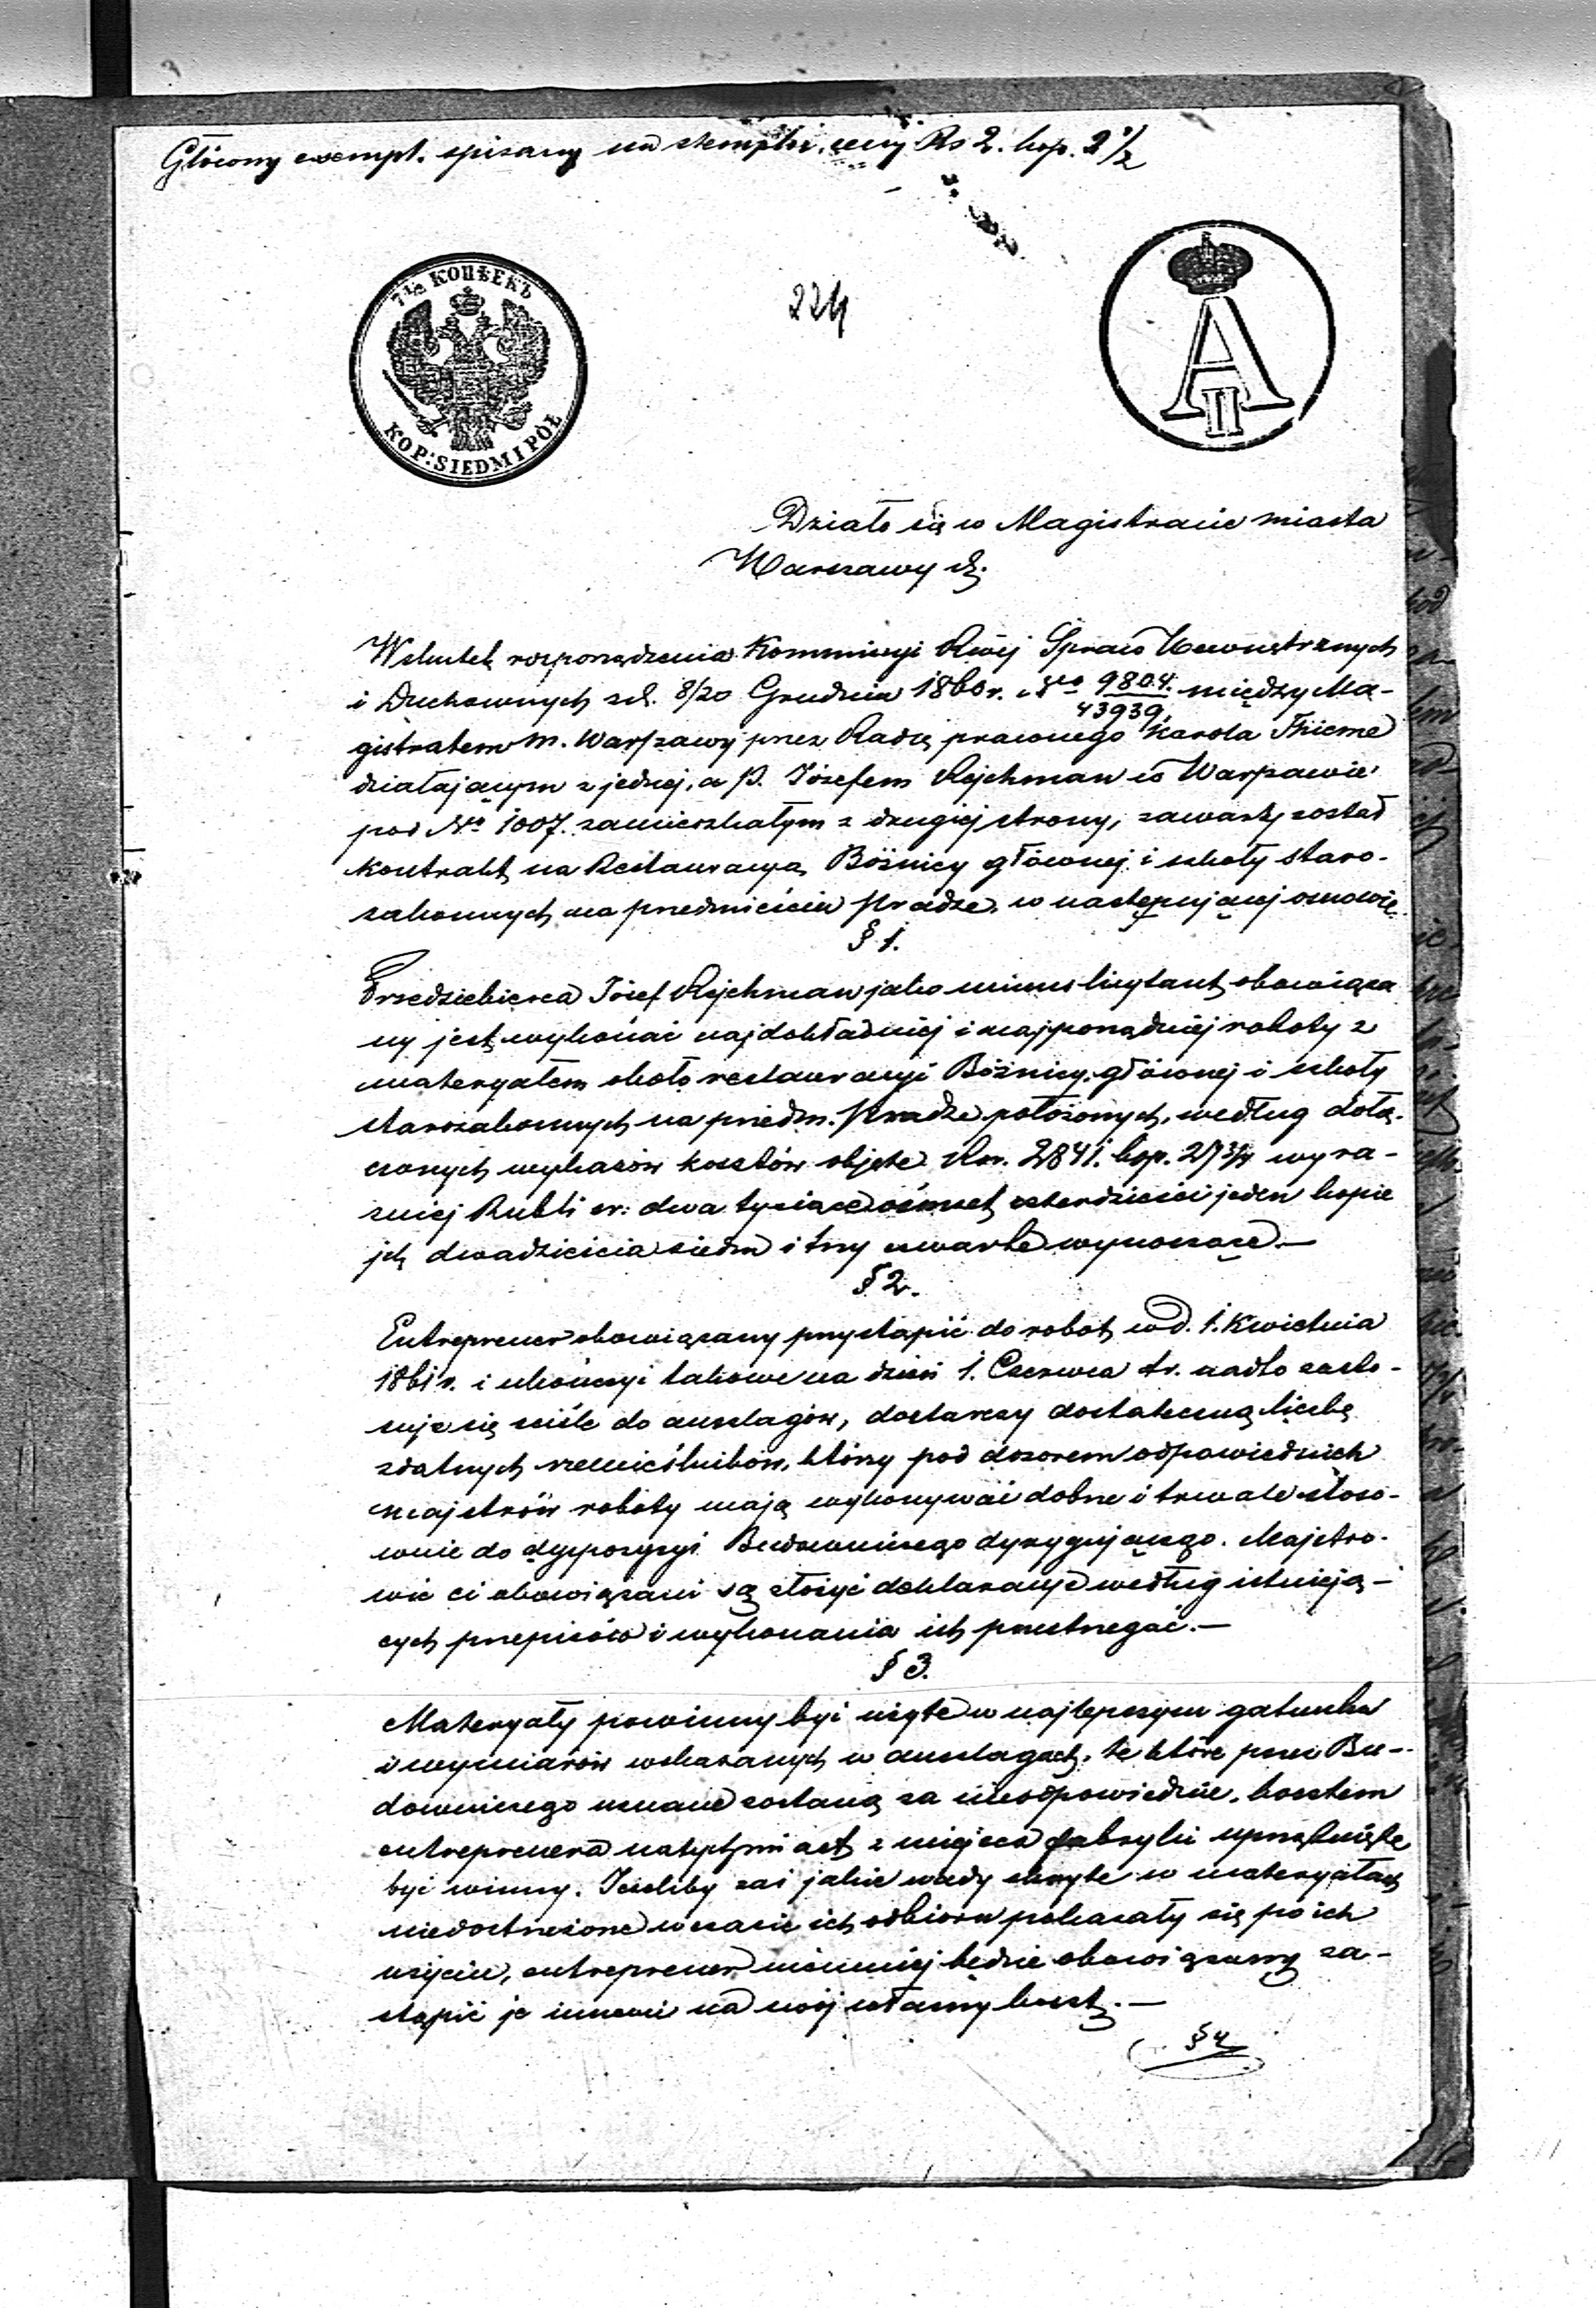 Główny exempl. spisany na stemplu ceny Rs 2. kop. 2 1/2
7 1/2 КОПѢЕКЪ
KOP: SIEDM I PÓŁ
224
A II
Działo się w Magistracie miasta
Warszawy d.
Wskutek rozporządzenia Kommissyi Rwej Spraw Wewnętrznych
i Duchownych zd. 8/20 Grudnia 1860 r. No 9804/43939. między Ma-
gistratem m. Warszawy przez Radcę prawnego Karola Thieme
działającym z jednej, a P. Józefem Rejchman w Warszawie
pod No 1007. zamieszkałym z drugiej strony, zawarty został
kontrakt na Restauracyą Bóźnicy głównej i szkoły staro-
zakonnych na przedmieściu Pradze, w następującej osnowie
§ 1.
Przedsiebierca Józef Rejchman jako minus licytant obowiąza
ny jest wykonać najdokładniej i najporządniej roboty z
materyałem około restauracyi Bóżnicy głównej i szkoły
starozakonnych na przedm. Pradze położonych, według dołą-
czonych wykazów kosztów objęte Rsr. 2841. kop. 27 3/4 wyra-
źniej Rubli sr: dwa tysiące ośmset czterdzieści jeden kopie
jek dwadzieścia siedm i trzy czwarte wynoszące.—
§ 2.
Entreprener obowiązany przystąpić do robot w d. 1. Kwietnia
1861 r. i ukończyć takowe na dzień 1. Czerwca t.r. nadto zasto-
suje się ściśle do anszlagów, dostarczy dostateczną liczbę
zdatnych rzemieślników, którzy pod dozorem odpowiednich
majstrów roboty mają wykonywać dobrze i trwale stoso-
wnie do dyspozycyi Budowniczego dyrygującego. Majstro-
wie ci obowiązani są złożyć deklaracye według istnieją-
cych przepisów i wykonania ich przestrzegać.—
§ 3.
Materyały powinny być użyte w najlepszym gatunku
i wymiarów wskazanych w anszlagach, te które przez Bu-
downiczego uznane zostaną za nieodpowiednie, kosztem
entreprenera natychmiast z miejsca fabryki uprzątnięte
być winny. Jeżeliby zaś jakie wady ukryte w materyałach
niedostrzeżone w czasie ich odbioru pokazały się po ich
użyciu, entreprener niemniej będzie obowiązany za-
stąpić je innemi na swój własny koszt.—
§ 4